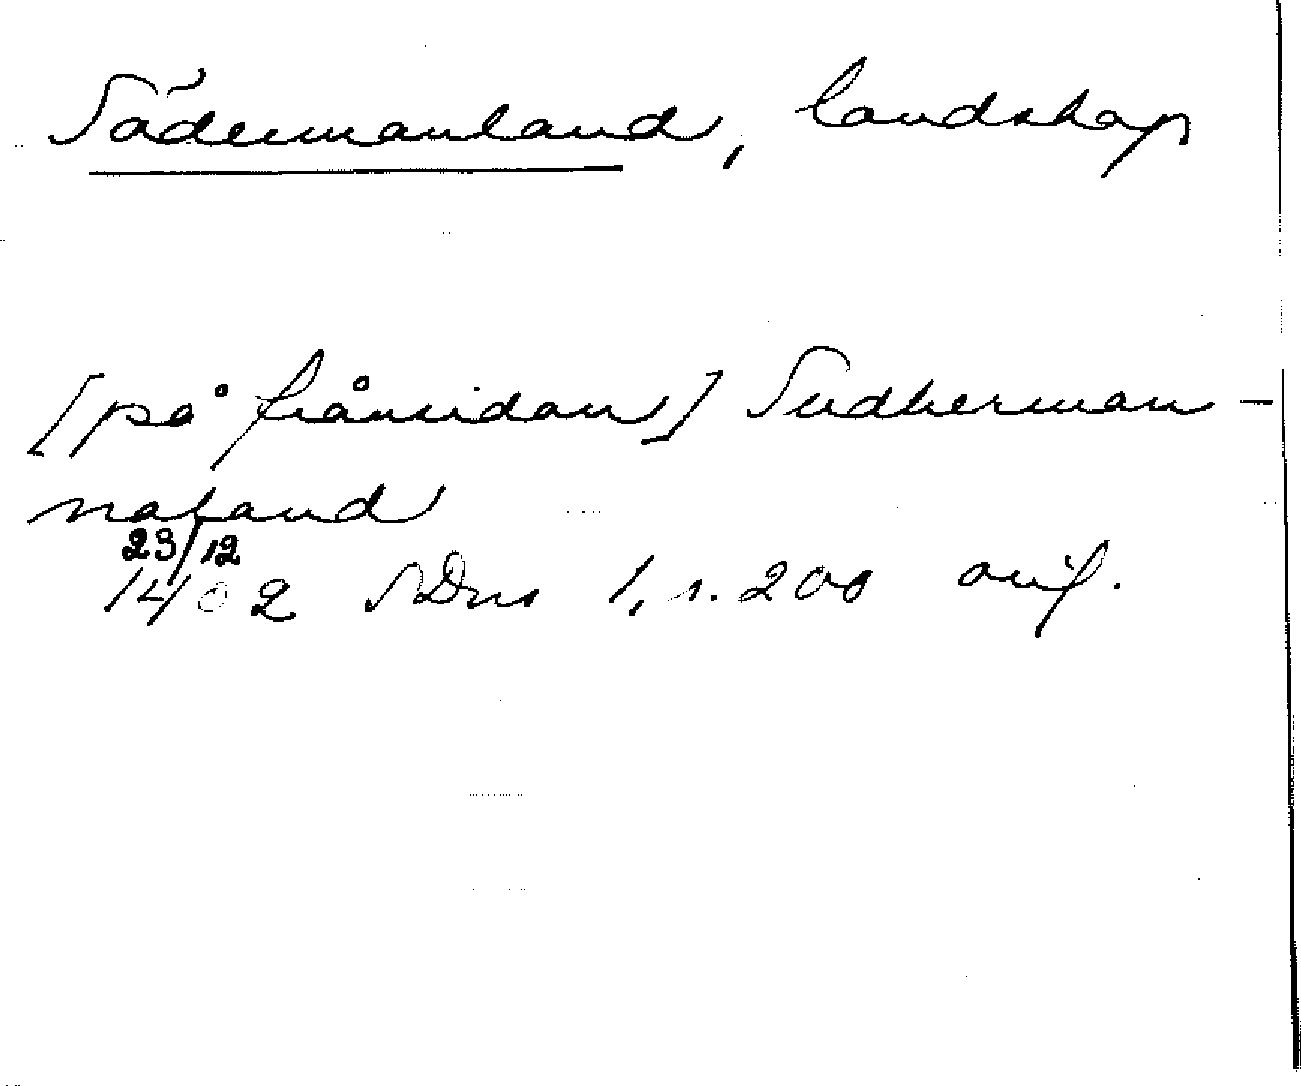 Södermanland, landskap
[på frånsidan] Sudherman-
naland
23/12
1402 SDns 1, s. 200 avif.